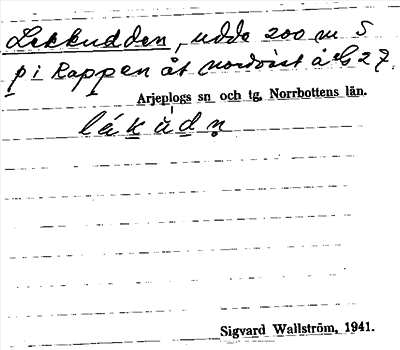 Lekkudden, udde 200 m S
p i Rappen åt nordväst å G 27.
Arjeplogs sn och tg, Norrbottens län.
lékùdn̥
Sigvard Wallström, 1941.